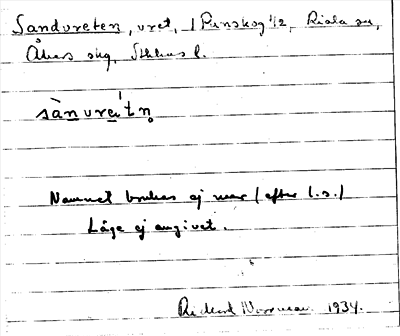 Sandvreten, vret, 1 Runskog 1/2, Riala sn,
Åkers skg, Sthlms l.
sànvre̍tn̥
Namnet brukas ej mer (efter l.s.)
Läge ej angivet.
Rickard 1934.